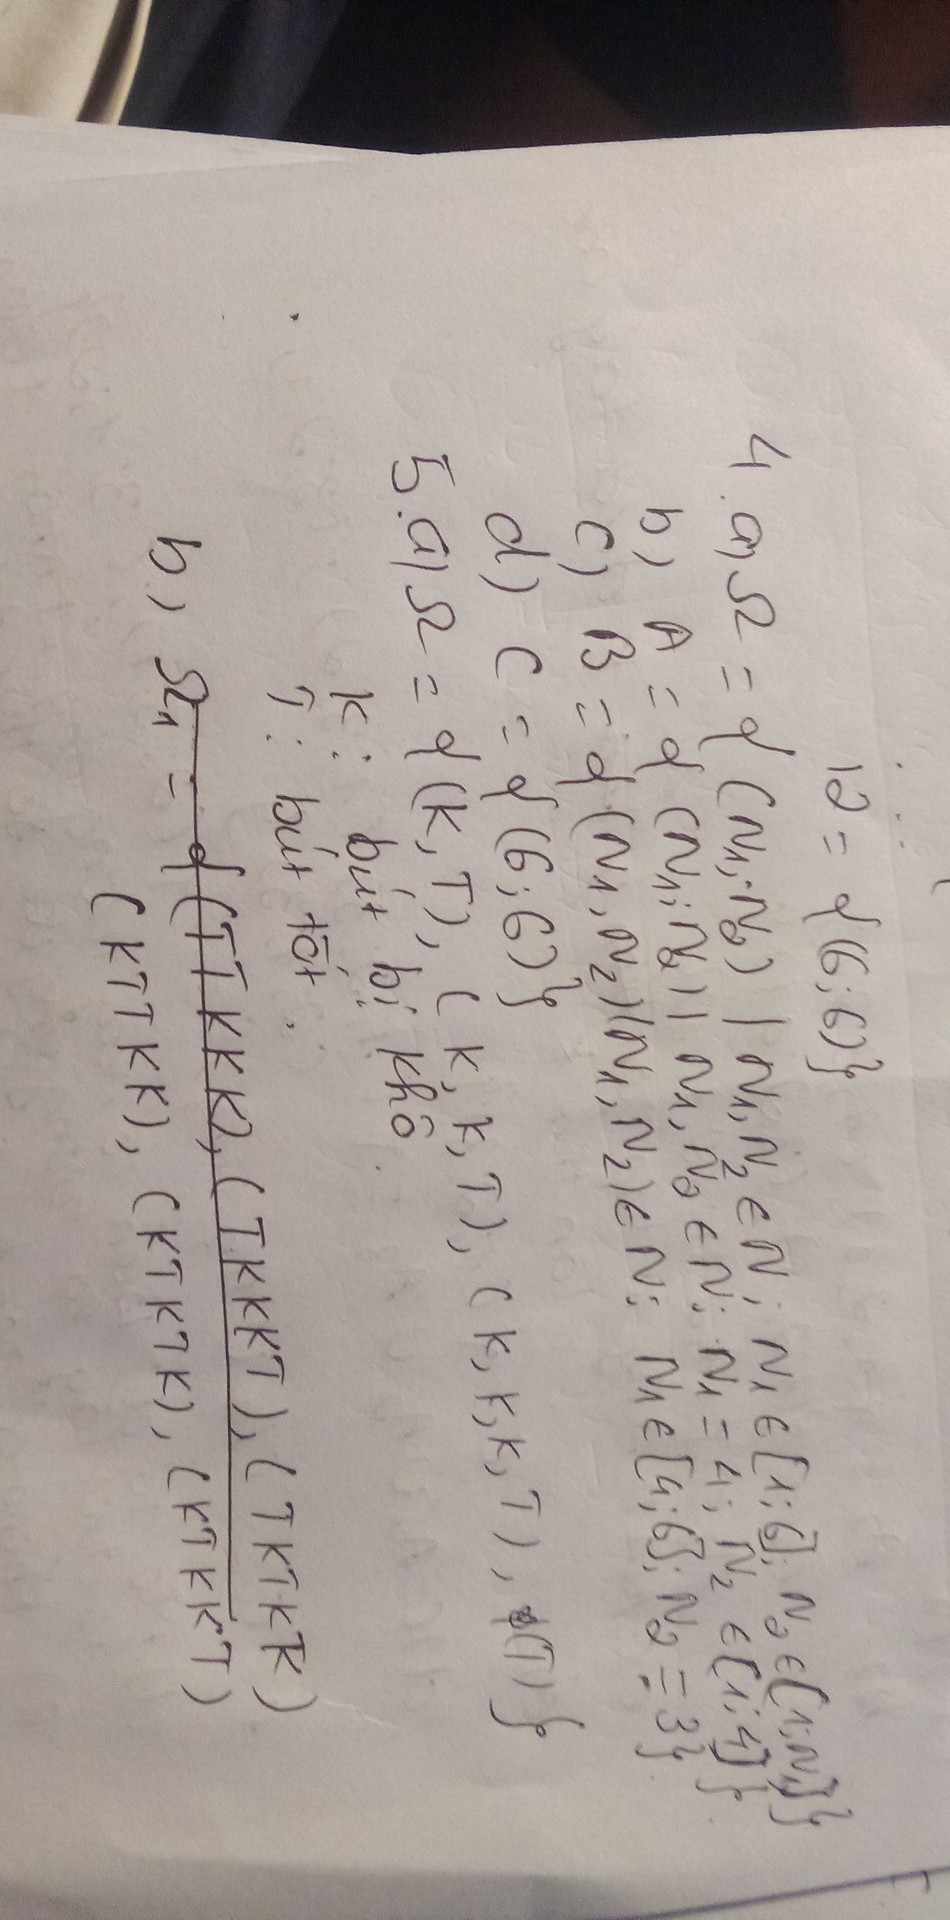 12 = {(6;6)}
4. a) Ω = { (N₁; N₂) | N₁, N₂ ∈ N; N₁ ∈ [1;6]; N₂ ∈ [1;N₁]}
b) A = { (N₁; N₂) | N₁, N₂ ∈ N; N₁ = 4; N₂ ∈ [1;4]}
c) B = { (N₁, N₂) | (N₁, N₂) ∈ N; N₁ ∈ [4;6]; N₂ = 3}
d) C = {(6;6)}
5. a) Ω = {(K, T), (K, K, T), (K, K, K, T), (T)}
K: bút bị khô.
T: bút tốt.
b) Ω₁ = {(TTKKK), (TKKKT), (TKTKK)
(KTTKK), (KTKTK), (KTKKT)